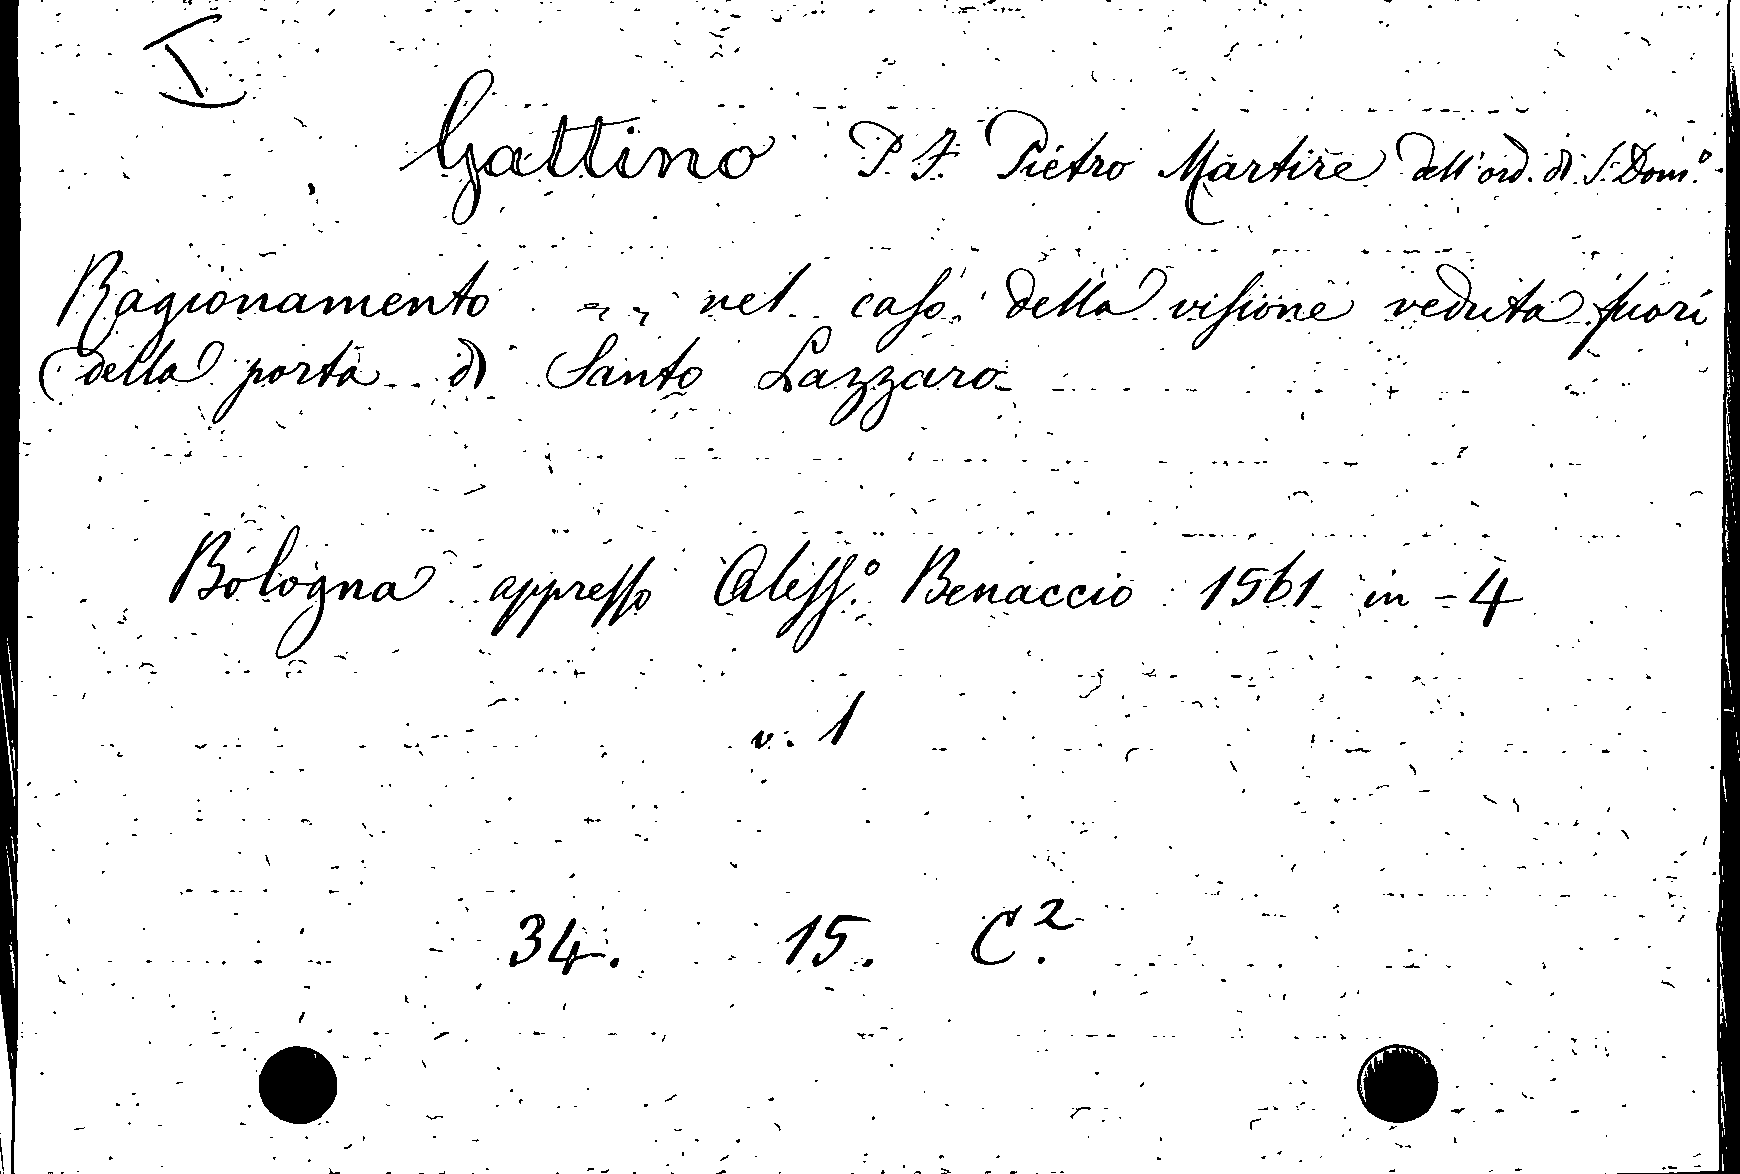 I
Gattino P. F. Pietro Martire dell'ord. di S. Dom.º
Ragionamento .. .. nel caso della visione veduta fuori
della porta di Santo Lazzaro
Bologna appresso Aless.º Benaccio 1561 in-4
v. 1
34. 15. C.²